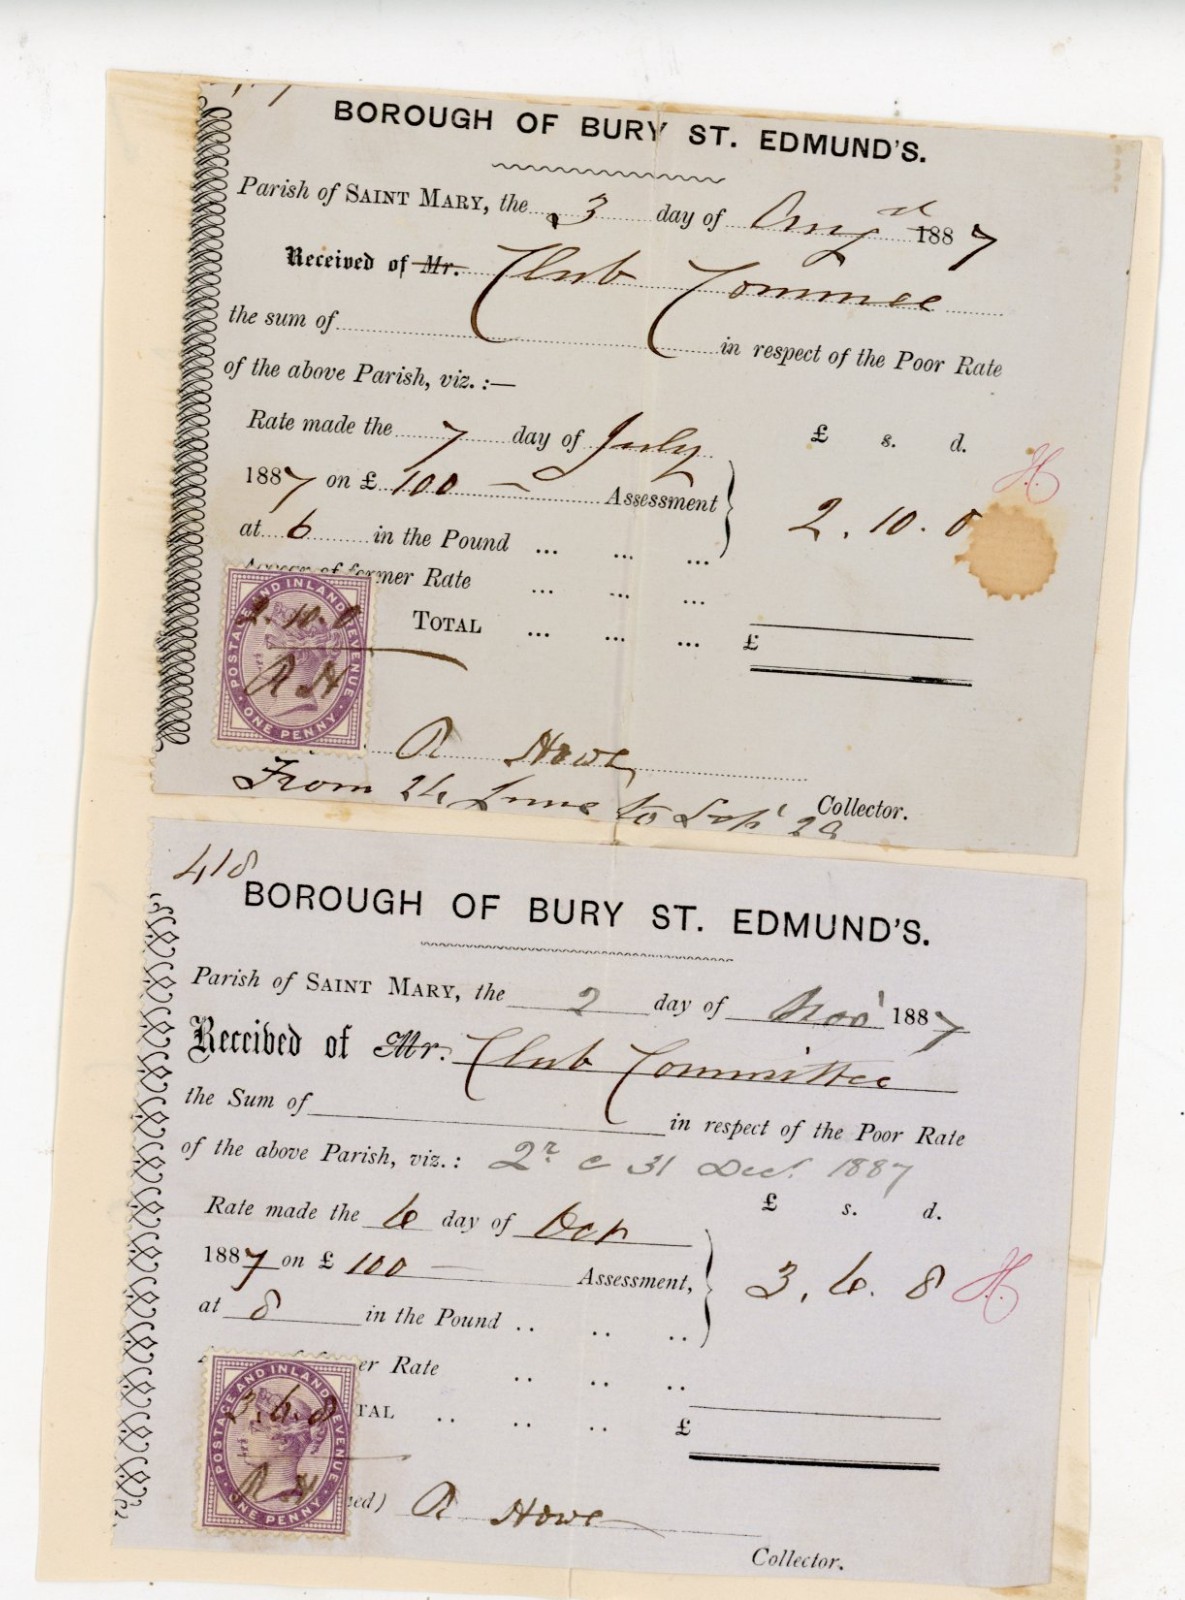 BOROUGH OF BURY ST. EDMUND'S.
Parish of SAINT MARY, the 3 day of Augst 1887
Received of Mr. Club Commee
the sum of in respect of the Poor Rate
of the above Parish, viz. :—
Rate made the 7 day of July £ s. d.
1887 on £ 100 — Assessment
at 6 in the Pound ... ... ... 2. 10. 0
H.
Arrear of former Rate ... ... ...
TOTAL ... ... ... £
POSTAGE AND INLAND REVENUE
ONE PENNY
2. 10. 0
R H
R Howe
Collector.
From 24 June to Sep' 29
418
BOROUGH OF BURY ST. EDMUND'S.
Parish of SAINT MARY, the 2 day of Nov' 1887
Received of Mr. Club Committee
the Sum of in respect of the Poor Rate
of the above Parish, viz. : 2r e 31 Dec. 1887
Rate made the 6 day of Oct £ s. d.
1887 on £ 100 — Assessment, 3. 6. 8 H.
at 8 in the Pound .. .. ..
er Rate .. .. ..
TAL .. .. .. £
POSTAGE AND INLAND REVENUE
ONE PENNY
3. 6. 8
R H
ned) R Howe
Collector.